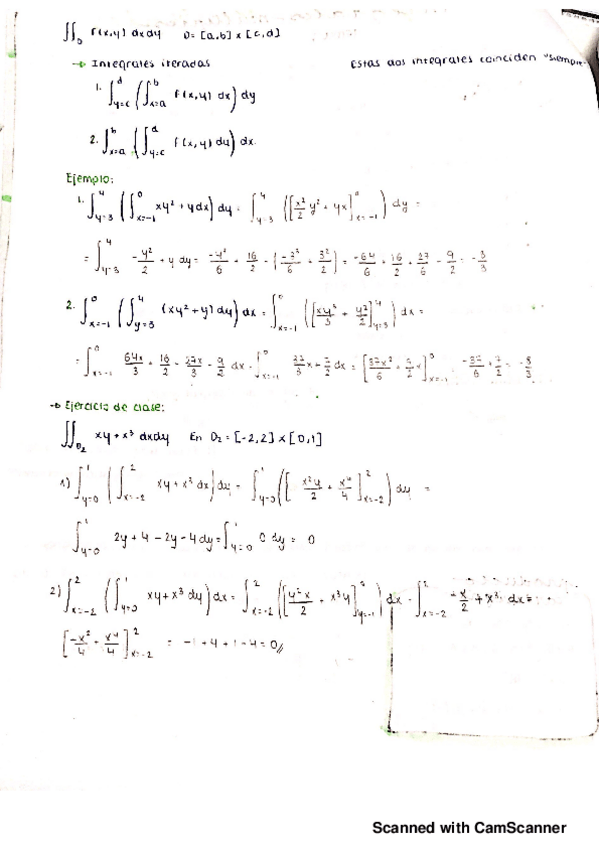 ∬_D f(x,y) dxdy   D = [a,b] x [c,d]
→ Integrales iteradas   Estas dos integrales coinciden "siempre"
1. ∫_{y=c}^{d} (∫_{x=a}^{b} f(x,y) dx) dy
2. ∫_{x=a}^{b} (∫_{y=c}^{d} f(x,y) dy) dx.
Ejemplo:
1. ∫_{y=3}^{4} (∫_{x=-1}^{0} xy² + y dx) dy = ∫_{y=3}^{4} ([x²/2 y² + yx]_{x=-1}^{0}) dy =
= ∫_{y=3}^{4} -y²/2 + y dy =
2. ∫_{x=-1}^{0} (∫_{y=3}^{4} (xy² + y) dy) dx = ∫_{x=-1}^{0} ([xy³/3 + y²/2]_{y=3}^{4}) dx =
= ∫_{x=-1}^{0} 64x/3 + 16/2 - 27x/3 - 9/2 dx =
→ Ejercicio de clase:
∬_{D₂} xy + x³ dxdy   En D₂ = [-2,2] x [0,1]
1) ∫_{y=0}^{1} (∫_{x=-2}^{2} xy + x³ dx) dy = ∫_{y=0}^{1} ([x²y/2 + x⁴/4]_{x=-2}^{2}) dy =
∫_{y=0}^{1} 2y + 4 - 2y - 4 dy = ∫_{y=0}^{1} 0 dy = 0
2) ∫_{x=-2}^{2} (∫_{y=0}^{1} xy + x³ dy) dx = ∫_{x=-2}^{2} ([y²x/2 + x³y]) dx = ∫_{x=-2}^{2} -x/2 + x³ dx =
[-x²/4 + x⁴/4]_{x=-2}^{2} = -1 + 4 + 1 - 4 = 0//
Scanned with CamScanner